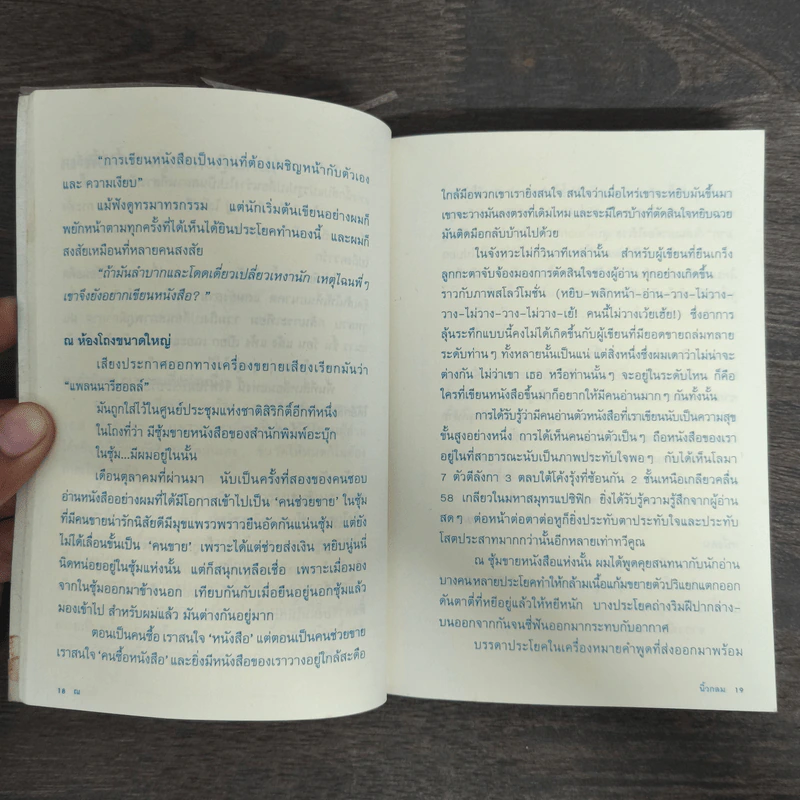 "การเขียนหนังสือเป็นงานที่ต้องเผชิญหน้ากับตัวเอง
และ ความเงียบ"
แม้ฟังดูทรมาทรกรรม แต่นักเริ่มต้นเขียนอย่างผมก็
พยักหน้าตามทุกครั้งที่ได้เห็นได้ยินประโยคทำนองนี้ และผมก็
สงสัยเหมือนที่หลายคนสงสัย
"ถ้ามันลำบากและโดดเดี่ยวเปลี่ยวเหงานัก เหตุไฉนพี่ๆ
เขาจึงยังอยากเขียนหนังสือ?"
ณ ห้องโถงขนาดใหญ่
เสียงประกาศออกทางเครื่องขยายเสียงเรียกมันว่า
"แพลนนารีฮอลล์"
มันถูกใส่ไว้ในศูนย์ประชุมแห่งชาติสิริกิติ์อีกทีหนึ่ง
ในโถงที่ว่า มีซุ้มขายหนังสือของสำนักพิมพ์อะบุ๊ก
ในซุ้ม...มีผมอยู่ในนั้น
เดือนตุลาคมที่ผ่านมา นับเป็นครั้งที่สองของคนชอบ
อ่านหนังสืออย่างผมที่ได้มีโอกาสเข้าไปเป็น 'คนช่วยขาย' ในซุ้ม
ที่มีคนขายน่ารักนิสัยดีมีมุขแพรวพราวยืนอัดกันแน่นซุ้ม แต่ยัง
ไม่ได้เลื่อนขั้นเป็น 'คนขาย' เพราะได้แต่ช่วยส่งเงิน หยิบนู่นนี่
นิดหน่อยอยู่ในซุ้มแห่งนั้น แต่ก็สนุกเหลือเชื่อ เพราะเมื่อมอง
จากในซุ้มออกมาข้างนอก เทียบกันกับเมื่อยืนอยู่นอกซุ้มแล้ว
มองเข้าไป สำหรับผมแล้ว มันต่างกันอยู่มาก
ตอนเป็นคนซื้อ เราสนใจ 'หนังสือ' แต่ตอนเป็นคนช่วยขาย
เราสนใจ 'คนซื้อหนังสือ' และยิ่งมีหนังสือของเราวางอยู่ใกล้สะดือ
18 ณ
ใกล้มือพวกเขาเรายิ่งสนใจ สนใจว่าเมื่อไหร่เขาจะหยิบมันขึ้นมา
เขาจะวางมันลงตรงที่เดิมไหม และจะมีใครบ้างที่ตัดสินใจหยิบฉวย
มันติดมือกลับบ้านไปด้วย
ในจังหวะไม่กี่วินาทีเหล่านั้น สำหรับผู้เขียนที่ยืนเกร็ง
ลูกกะตาจับจ้องมองการตัดสินใจของผู้อ่าน ทุกอย่างเกิดขึ้น
ราวกับภาพสโลว์โมชั่น (หยิบ-พลิกหน้า-อ่าน-วาง-ไม่วาง-
วาง-ไม่วาง-วาง-ไม่วาง-เย้! คนนี้ไม่วางเว้ยเฮ้ย!) ซึ่งอาการ
ลุ้นระทึกแบบนี้คงไม่ได้เกิดขึ้นกับผู้เขียนที่มียอดขายถล่มทลาย
ระดับท่านๆ ทั้งหลายนั้นเป็นแน่ แต่สิ่งหนึ่งซึ่งผมเดาว่าไม่น่าจะ
ต่างกัน ไม่ว่าเขา เธอ หรือท่านนั้นๆ จะอยู่ในระดับไหน ก็คือ
ใครที่เขียนหนังสือขึ้นมาก็อยากให้มีคนอ่านมากๆ กันทั้งนั้น
การได้รับรู้ว่ามีคนอ่านตัวหนังสือที่เราเขียนนับเป็นความสุข
ขั้นสูงอย่างหนึ่ง การได้เห็นคนอ่านตัวเป็นๆ ถือหนังสือของเรา
อยู่ในที่สาธารณะนับเป็นภาพประทับใจพอๆ กับได้เห็นโลมา
7 ตัวตีลังกา 3 ตลบใต้โค้งรุ้งที่ซ้อนกัน 2 ชั้นเหนือเกลียวคลื่น
58 เกลียวในมหาสมุทรแปซิฟิก ยิ่งได้รับรู้ความรู้สึกจากผู้อ่าน
สดๆ ต่อหน้าต่อตาต่อหูก็ยิ่งประทับตาประทับใจและประทับ
โสตประสาทมากกว่านั้นอีกหลายเท่าทวีคูณ
ณ ซุ้มขายหนังสือแห่งนั้น ผมได้พูดคุยสนทนากับนักอ่าน
บางคนหลายประโยคทำให้กล้ามเนื้อแก้มขยายตัวปริแยกแตกออก
ดันตาตี่ที่หยีอยู่แล้วให้หยีหนัก บางประโยคถ่างริมฝีปากล่าง-
บนออกจากกันจนซี่ฟันออกมากระทบกับอากาศ
บรรดาประโยคในเครื่องหมายคำพูดที่ส่งออกมาพร้อม
นิ้วกลม 19